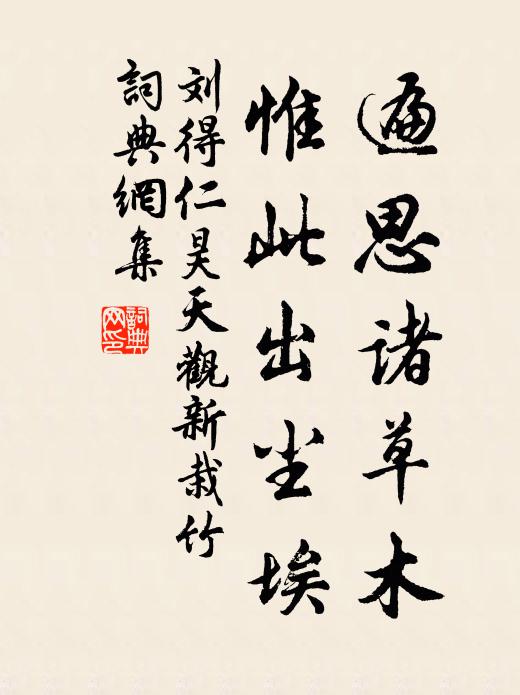 遍思诸草木
惟此出尘埃
刘得仁昊天觀新栽竹
詞典網集
詞典
网印